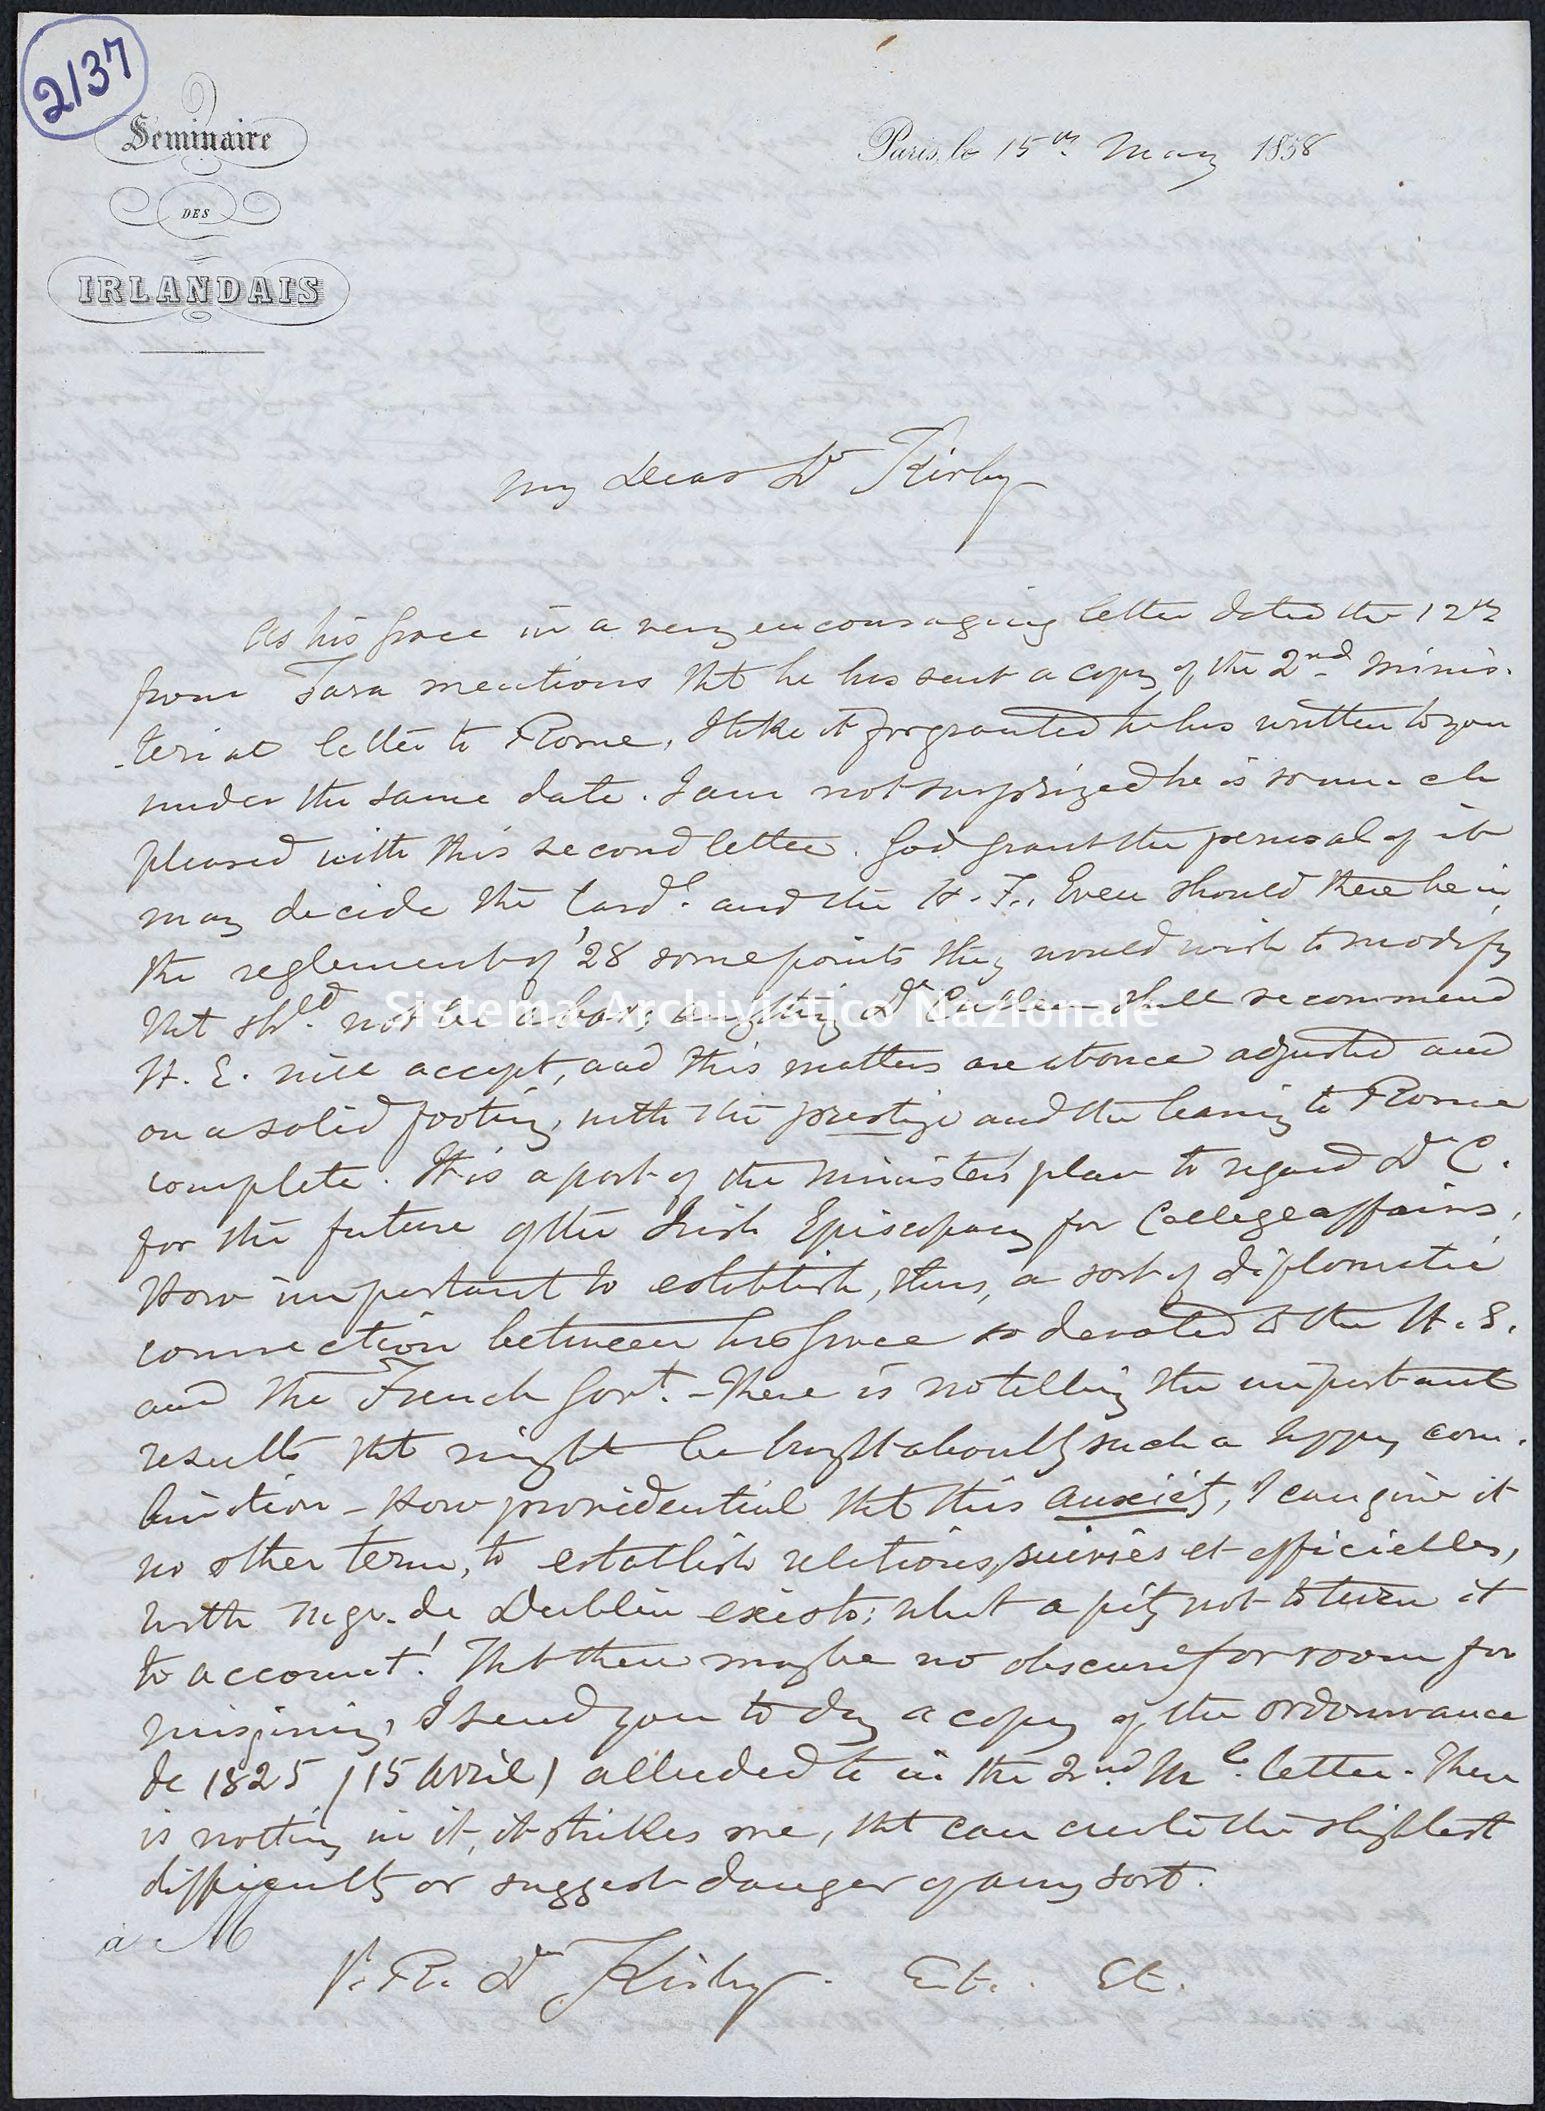 2137
Seminaire
DES
IRLANDAIS
Paris, le 15th May 1858
My Dear Dr Kirby
As his Grace in a very encouraging letter dated the 12th
from Tara mentions tht he has sent a copy of the 2nd minis-
-terial letter to Rome, I take it for granted he has written to you
under the same date. I am not surprized he is so much
pleased with this second letter. God grant the perusal of it
may decide the Cardl. and the H. F., Even should there be in
the reglement of '28 some points they would wish to modify
tht shld. not be a bar; anything Dr Cullen shall recommend
H. E. will accept, and this matters are at once adjusted and
on a solid footing, with the prestige and the leaning to Rome
complete. It is a part of the Minister's plan to regard Dr C.
for the future of the Irish Episcopacy for College affairs.
How important to establish, thus, a sort of diplomatic
connection between his Grace so devoted to the H. S.
and the French Govt. - There is no telling the important
results tht might be brought about by such a happy com-
bination - How providential tht this anxiety, I can give it
no other term, to establish relations, suivies et officielles,
with Mgr. de Dublin exists; what a pity not to turn it
to account! Tht there may be no obscurity or room for
misgiving, I send you to day a copy of the ordonnance
de 1825 (15 Avril) alluded to in the 2nd Ml. letter. There
is nothing in it, it strikes me, tht can create the slightest
difficulty or suggest danger of any sort.
a M
V. R. Dr Kirby. Et.. Et.
Sistema Archivistico Nazionale